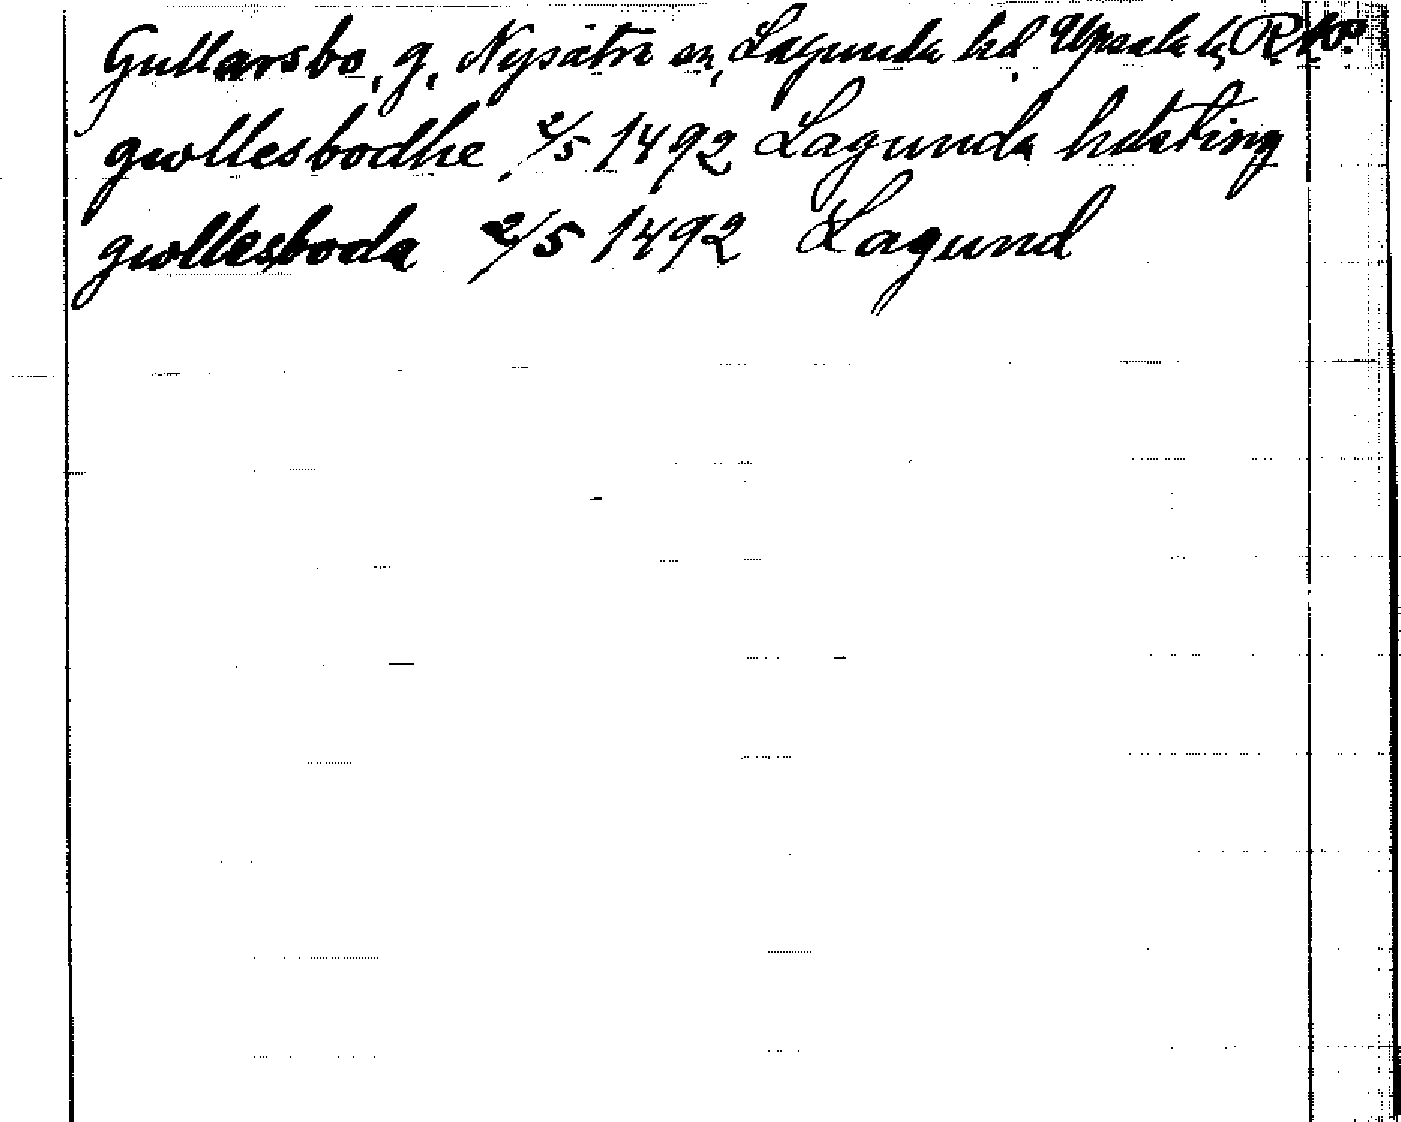 Gullarsbo, g, Nysätra sn, Lagunda hd, Upsala l,
gwllesbodhe 2/5 1492 Lagunda hdsting
gwllesboda 2/5 1492 Lagund